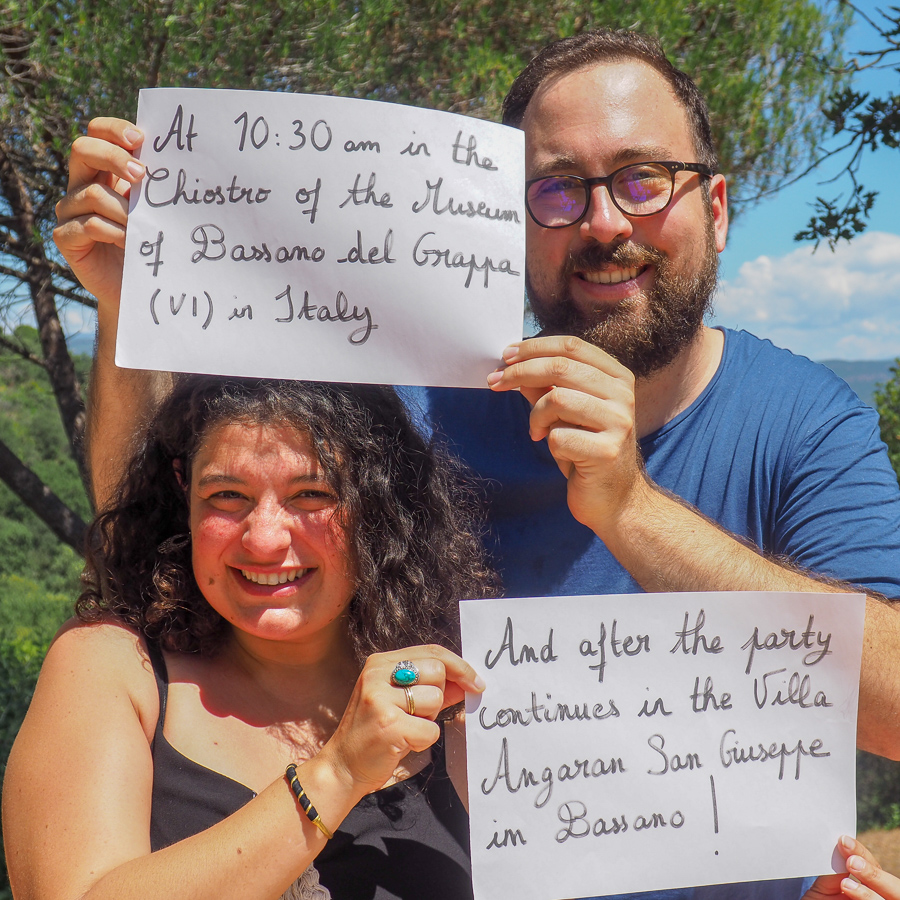 At 10:30 am in the
Chiostro of the Museum
of Bassano del Grappa
(VI) in Italy
And after the party
continues in the Villa
Angaran San Giuseppe
in Bassano !